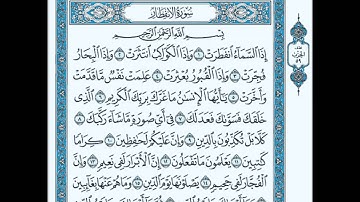 سُورَةُ الِانفِطَارِ
بِسْمِ اللَّهِ الرَّحْمَٰنِ الرَّحِيمِ
إِذَا السَّمَاءُ انفَطَرَتْ ١ وَإِذَا الْكَوَاكِبُ انتَثَرَتْ ٢ وَإِذَا الْبِحَارُ
فُجِّرَتْ ٣ وَإِذَا الْقُبُورُ بُعْثِرَتْ ٤ عَلِمَتْ نَفْسٌ مَّا قَدَّمَتْ
وَأَخَّرَتْ ٥ يَا أَيُّهَا الْإِنسَانُ مَا غَرَّكَ بِرَبِّكَ الْكَرِيمِ ٦ الَّذِي
خَلَقَكَ فَسَوَّاكَ فَعَدَلَكَ ٧ فِي أَيِّ صُورَةٍ مَّا شَاءَ رَكَّبَكَ ٨
كَلَّا بَلْ تُكَذِّبُونَ بِالدِّينِ ٩ وَإِنَّ عَلَيْكُمْ لَحَافِظِينَ ١٠ كِرَامًا
كَاتِبِينَ ١١ يَعْلَمُونَ مَا تَفْعَلُونَ ١٢ إِنَّ الْأَبْرَارَ لَفِي نَعِيمٍ ١٣ وَإِنَّ
الْفُجَّارَ لَفِي جَحِيمٍ ١٤ يَصْلَوْنَهَا يَوْمَ الدِّينِ ١٥ وَمَا هُمْ عَنْهَا بِغَائِبِينَ